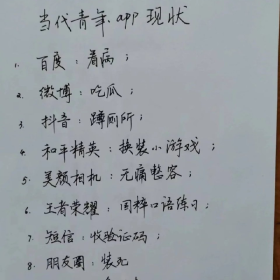 当代青年.app现状
1. 百度：看病；
2. 微博：吃瓜；
3. 抖音：蹲厕所；
4. 和平精英：换装小游戏；
5. 美颜相机：无痛整容；
6. 王者荣耀：国粹口语练习；
7. 短信：收验证码；
8. 朋友圈：装死